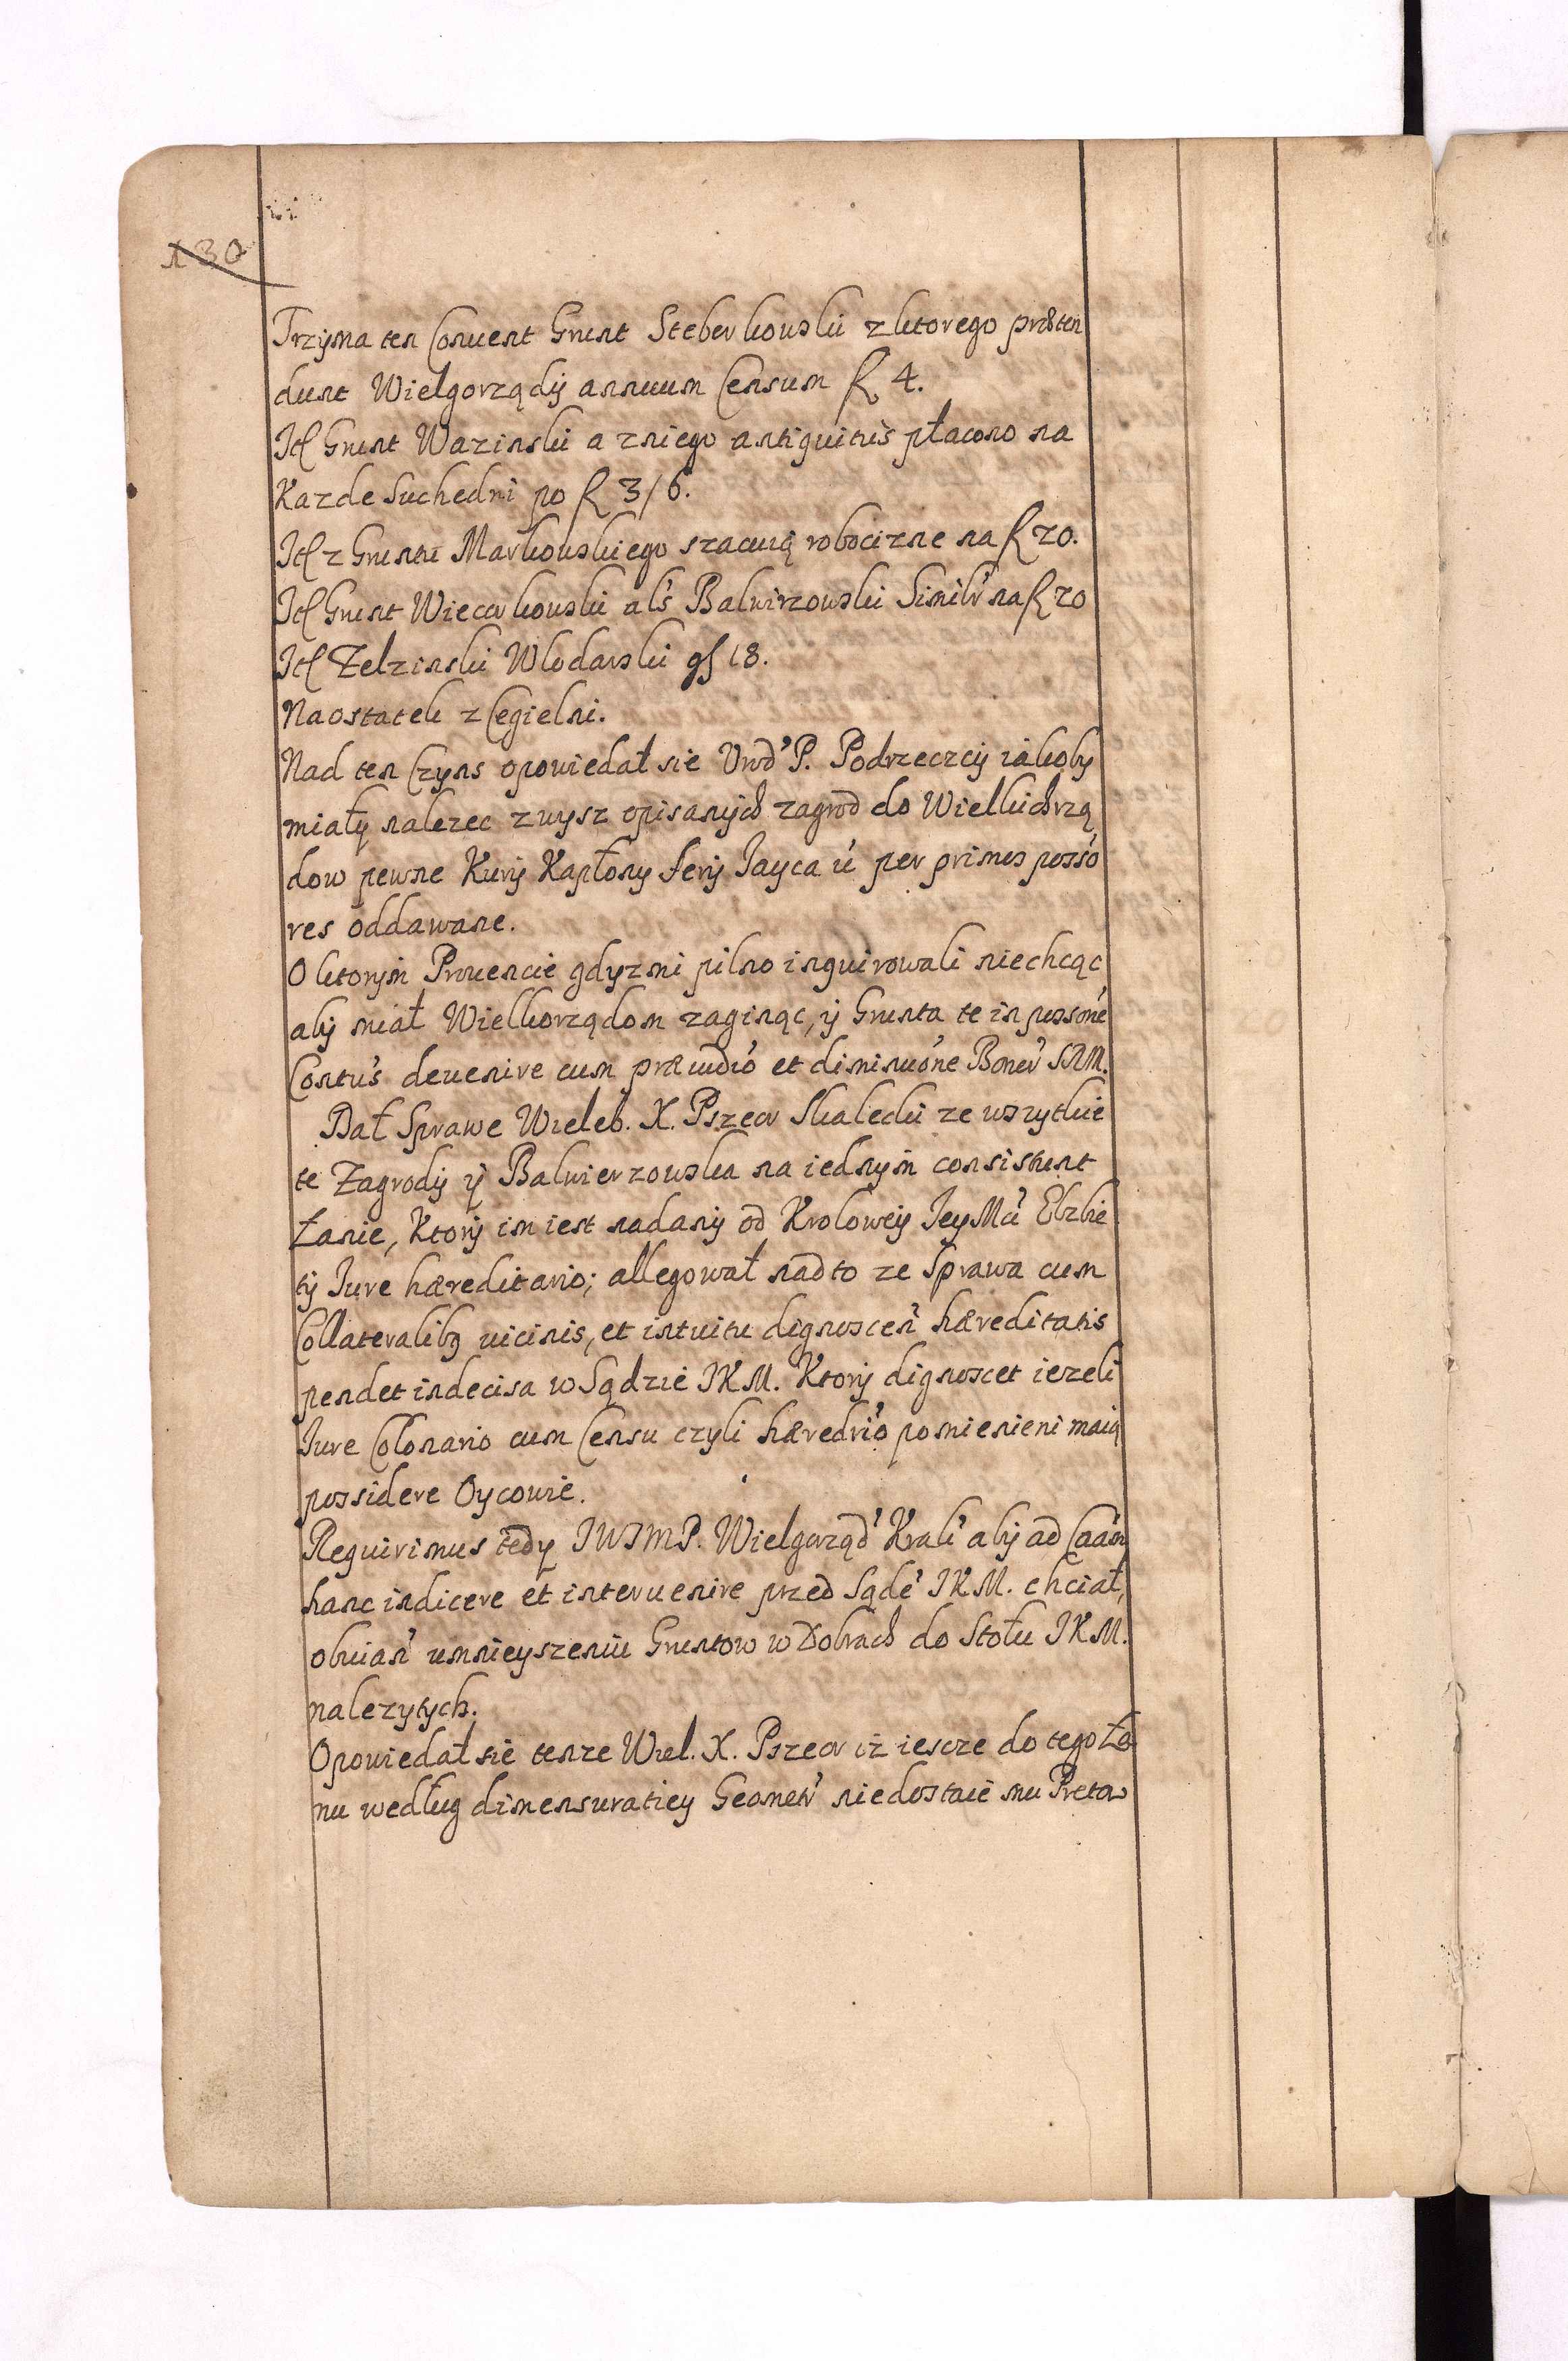 130
Trzyma ten Convent Grunt Steberkowski z ktorego præten
dunt Wielgorządy annuum Censum f 4.
Itt Grunt Wazinski a z niego antiquitus płacono na
Kazde Suchedni po f 3/6.
Itt z Gruntu Markowskiego szacuią robocizne na f 20.
Itt Grunt Wiecorkowski als Balwirzowski Similr na f 20
Itt Zelzinski Wlodarski gs 18.
Na ostatek z Cegielni.
Nad ten Czyns opowiedał sie Urod P. Podrzeczcy iakoby
miały nalezec z wysz opisanych zagrod do Wielkichrzą
dow pewne Kury Kapłony Sery Jayca ú per primos possó
res oddawane.
O ktorym Prouencie gdyzmi pilno inquirowali niechcąc
aby miał Wielkorządom zaginąc, ÿ Grunta te in possóne
Contus devenire cum præiudió et diminuóne Bonor SRM.
Dał Sprawe Wieleb. X. Pszeor Skalecki ze wszytkie
te Zagrody ÿ Balwierzowska na iednym consistunt
Łanie, Ktory im iest nadany od Krolowey Jey Mci Elzbie
ty Jure hæreditario; allegował nadto ze Sprawa cum
Collateralibq vicinis, et intuitu dignoscen hæreditatis
pendet indecisa w Sądzie JKM. Ktory dignoscet iezeli
Jure Colonario cum Censu czyli hæredrió pomienieni maią
possidere Oycowie.
Requirimus tedy JWJMP. Wielgorząd Krak aby ad Caam
hanc indicere et intervenire przed Sąde JKM. chciał,
obvian umnieyszeniu Gruntow w Dobrach do Stołu JKM.
nalezytych.
Opowiedał sie tenze Wiel. X. Pszeor iz iescze do tego Ła
nu według dimensuratiey Geometr niedostaie mu Pretow